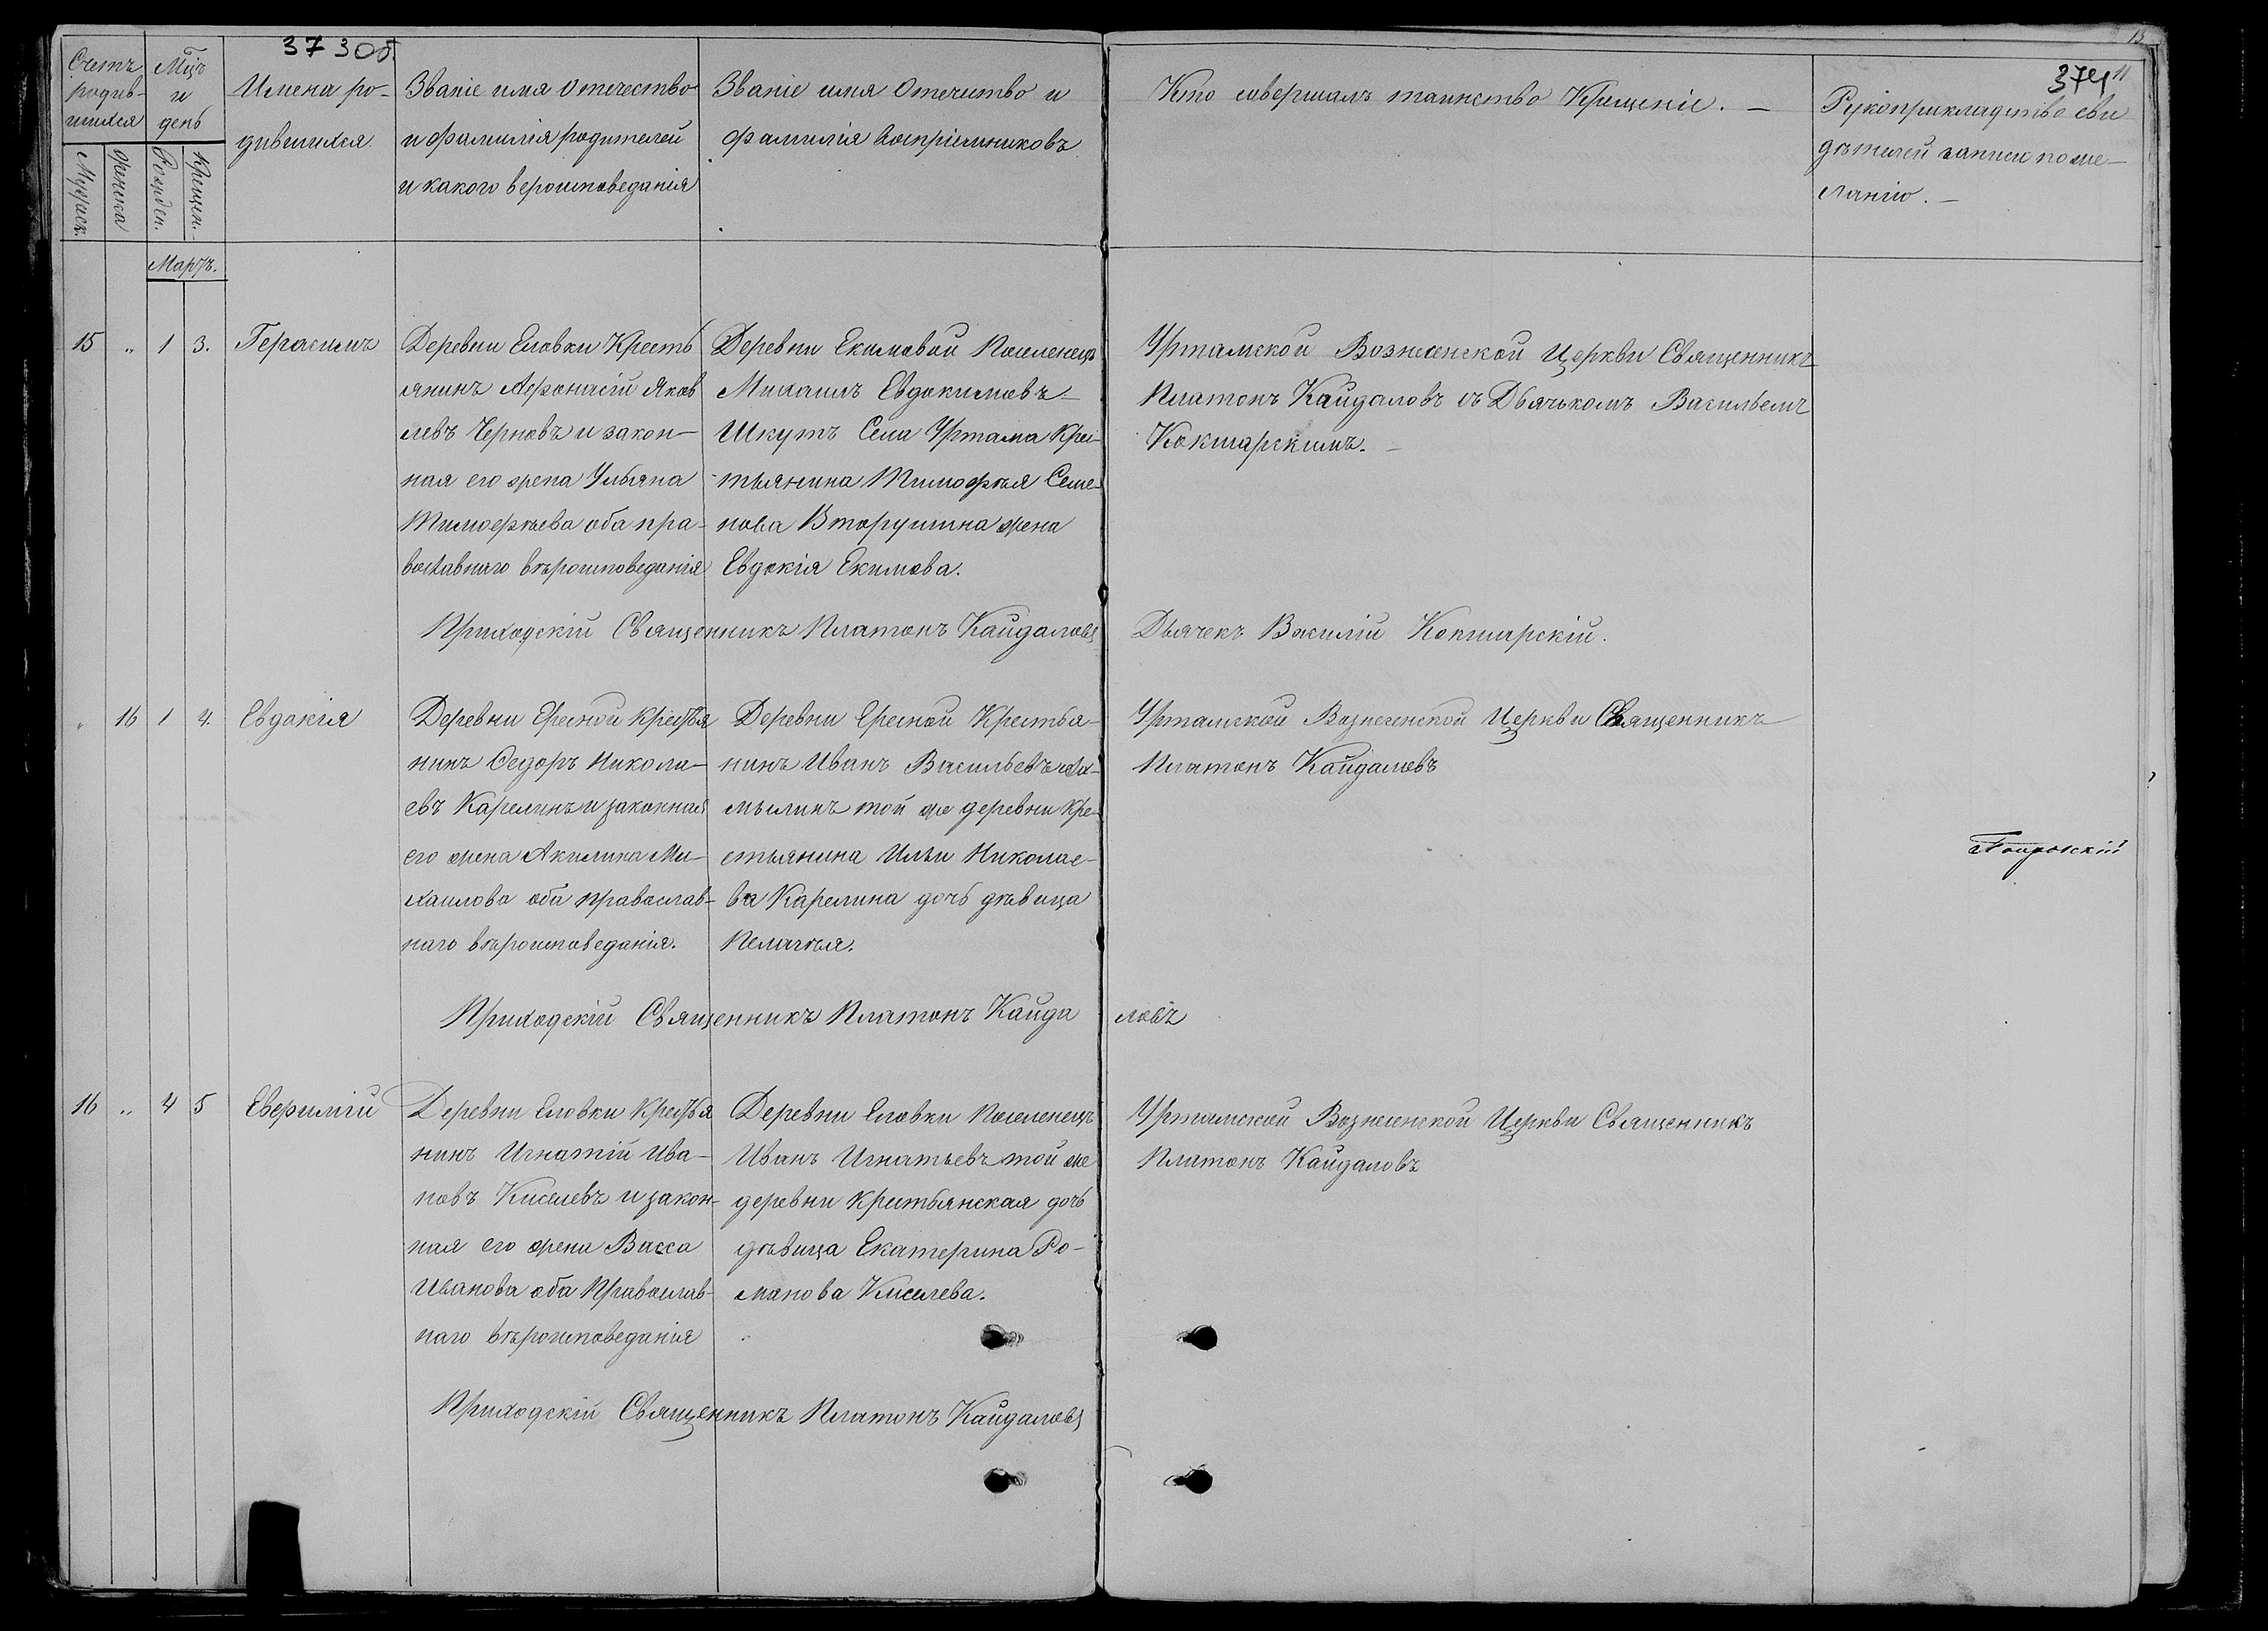 373 об.
374
11
13
Счетъ родив-
шихся
Мцъ
и
день
Имена ро-
дившихся
Званіе имя отечество
и фамилія родителей
и какого вероисповеданія
Званіе имя Отечество и
фамилія воспріемниковъ
Кто совершалъ таинство Крещеніе. —
Рукоприкладство сви
дѣтелей записи по же-
ланію. —
Мужеск.
женска
Рожден.
Крещен.
Мартъ.
15 „ 1 3. Герасимъ
Деревни Еловки Кресть
янинъ Афонасій Яков
левъ Черновъ и закон-
ная его жена Ульяна
Тимофѣева оба пра-
вославнаго вѣроисповеданія
Деревни Екимовой Поселенецъ
Михаилъ Евдокимовъ
Шкутъ Села Уртама Крес-
тьянина Тимофѣя Семе-
нова Вторушина жена
Евдокія Екимова.
Уртамской Вознесенской Церкви Священникъ
Платонъ Кайдаловъ съ Дьячькомъ Васильемъ
Кокшарскимъ. —
Приходскій Священникъ Платонъ Кайдаловъ
Дьячекъ Василій Кокшарскій.
„ 16 1 4. Евдакія
Деревни Ересной Крестья
нинъ Федоръ Никола-
евъ Карелинъ и законная
его жена Акилина Ми-
хаилова оба православ-
наго вѣроисповеданія.
Деревни Ересной Крестья-
нинъ Иванъ Васильевъ
мылинъ той же деревни Кре-
стьянина Ильи Николае-
ва Карелина дочь дѣвица
Пелагѣя.
Уртамской Вознесенской Церкви Священникъ
Платонъ Кайдаловъ
Приходскій Священникъ Платонъ Кайда ловъ
16 „ 4 5 Евфимій
Деревни Еловки Крестья
нинъ Игнатій Ива-
новъ Киселевъ и закон-
ная его жена Васса
Иванова оба Православ-
наго вѣроисповеданія
Деревни Еловки Поселенецъ
Иванъ Игнатьевъ той же
деревни Крестьянская дочь
дѣвица Екатерина Ро-
манова Киселева.
Уртамской Вознесенской Церкви Священникъ
Платонъ Кайдаловъ
Приходскій Священникъ Платонъ Кайдаловъ